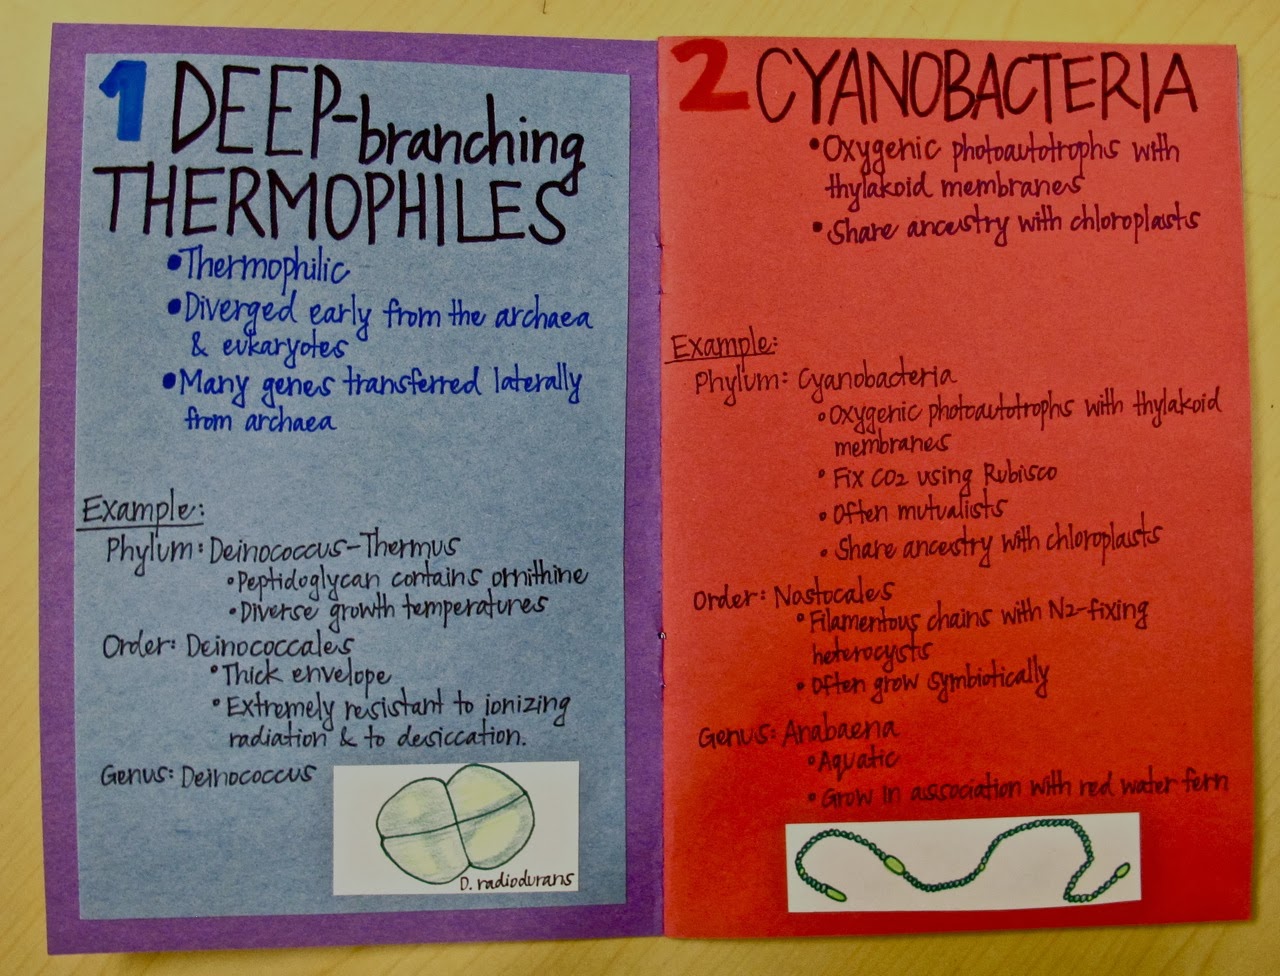 1 DEEP-branching
THERMOPHILES
•Thermophilic
•Diverged early from the archaea
& eukaryotes
•Many genes transferred laterally
from archaea
Example:
Phylum: Deinococcus-Thermus
•Peptidoglycan contains ornithine
•Diverse growth temperatures
Order: Deinococcales
•Thick envelope
•Extremely resistant to ionizing
radiation & to desiccation.
Genus: Deinococcus
D. radiodurans
2 CYANOBACTERIA
•Oxygenic photoautotrophs with
thylakoid membranes
•Share ancestry with chloroplasts
Example:
Phylum: Cyanobacteria
•Oxygenic photoautotrophs with thylakoid
membranes
•Fix CO2 using Rubisco
•Often mutualists
•Share ancestry with chloroplasts
Order: Nostocales
•Filamentous chains with N2-fixing
heterocysts
•Often grow symbiotically
Genus: Anabaena
•Aquatic
•Grow in association with red water fern